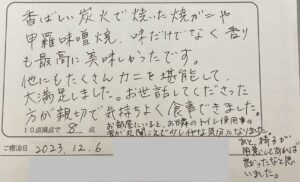 香ばしい炭火で焼いた焼ガニや
甲羅味噌焼、味だけでなく香り
も最高に美味しかったです。
他にもたくさんカニを堪能して、
大満足しました。お世話してくださった
方が親切で気持ちよく食事できました。
お部屋にいると、お隣のトイレ使用車の
音が丸聞こえで少し
なりました。
あと、椅子が
用意してあれば
良かったなと思
いました。
10点満点で 8 点
ご宿泊日 2023.12.6